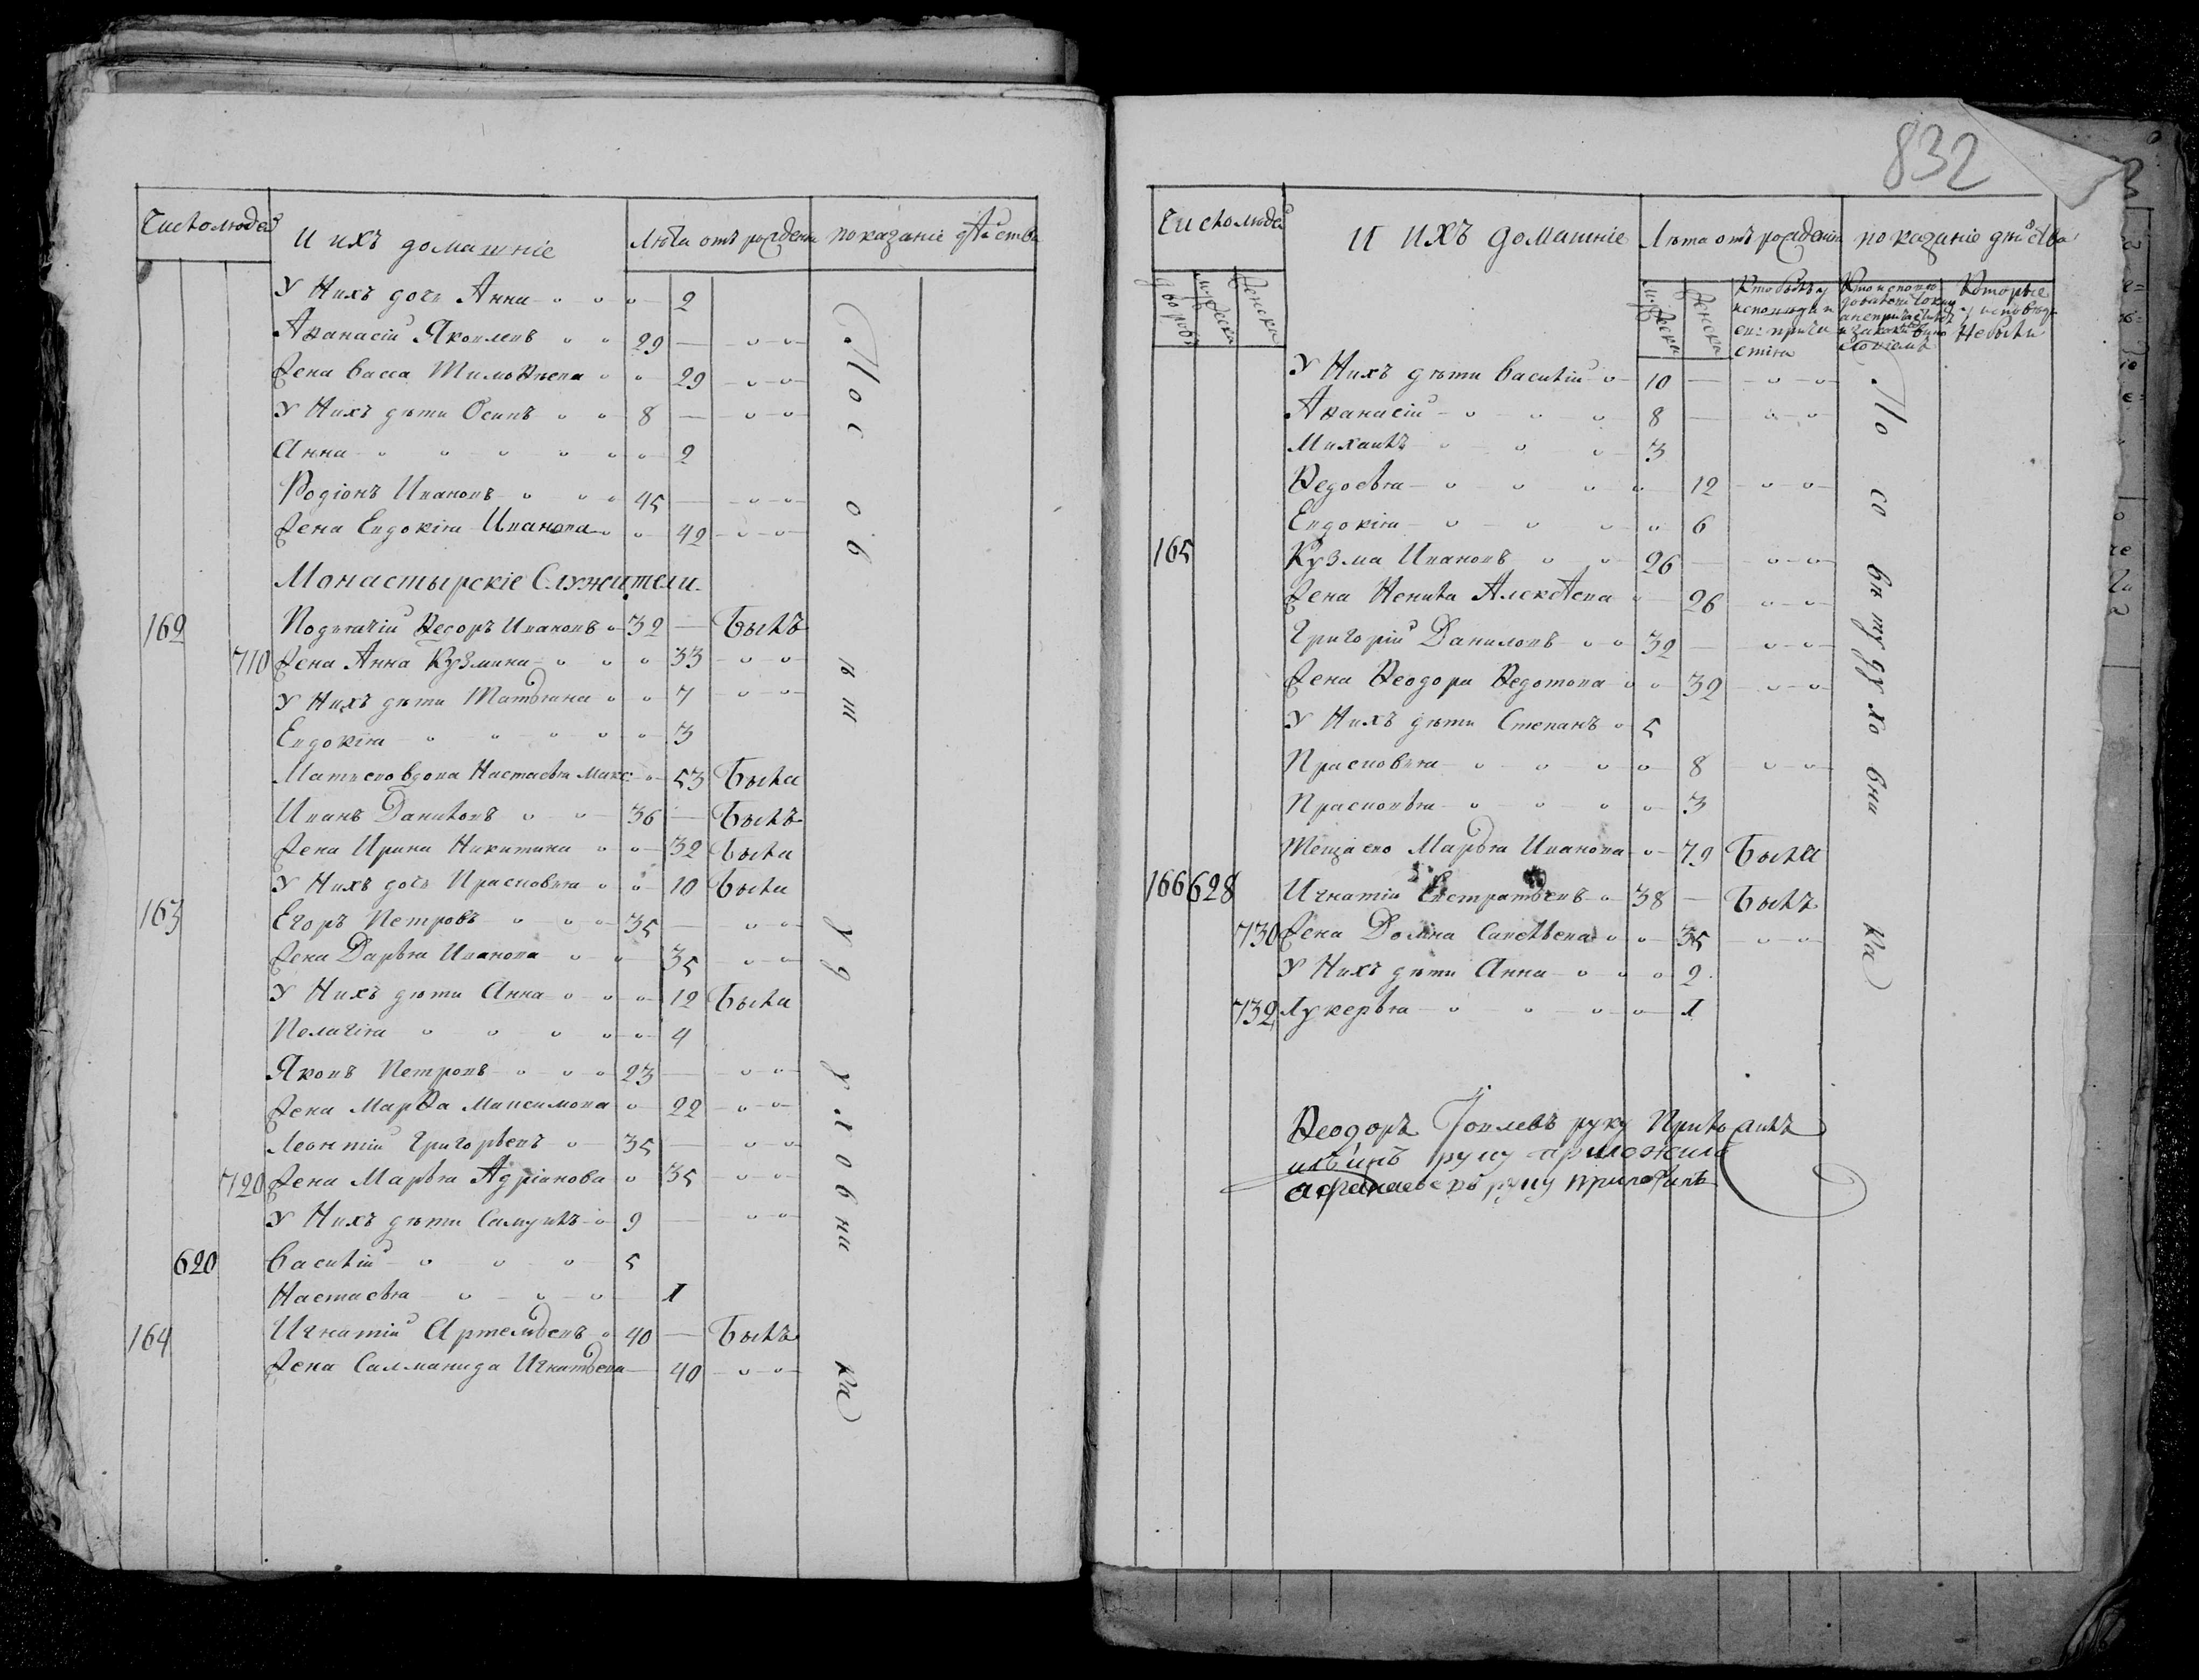 Число людей
И ихъ домашніе
Лѣта отъ рожденія
показаніе дѣйства
У Нихъ дочь Анна 2
Аѳанасій Яковлевъ 29
Жена Васса Тимоѳѣева 29
У Нихъ дѣти Осипъ 8
Анна 2
Родіонъ Ивановъ 45
Жена Евдокія Иванова 42
Монастырскіе Служители
162 Подъячій Ѳедоръ Ивановъ 32 Былъ
710 Жена Анна Кузмина 33
У Нихъ дѣти Татьяна 7
Евдокія 3
Мать его вдова Настасья Макс: 53 Была
Иванъ Даниловъ 36 Былъ
Жена Ирина Никитина 32 Была
У Нихъ дочь Прасковья 10 Была
163 Егоръ Петровъ 35
Жена Дарья Иванова 35
У Нихъ дѣти Анна 12 Была
Пелагія 4
Яковъ Петровъ 23
Жена Марѳа Максимова 22
Леонтій Григорьевъ 35
720 Жена Марья Адріанова 35
У Нихъ дѣти Самуилъ 9
620 Василій 5
Настасья 1
164 Игнатій Артемьевъ 40 Былъ
Жена Салманида Игнатьева 40
832
Число людей
И ихъ домашніе
Лѣта отъ рожденія
показаніе дѣйства
дворовъ
мужеска
женска
мужеска
женска
Которые у исповѣди не были
У Нихъ дѣти Василій 10
Аѳанасій 8
Михаилъ 3
Ѳедосья 12
Евдокія 6
165 Кузма Ивановъ 26
Жена Ненила Алексѣева 26
Григорій Даниловъ 32
Жена Ѳеодора Ѳедотова 32
У Нихъ дѣти Степанъ 5
Прасковья 8
Прасковья 3
Теща его Марья Иванова 79 Была
166 628 Игнатій Евстратьевъ 38 Былъ
730 Жена Домна Савельева 35
У Нихъ дѣти Анна 2
732 Лукерья 1
Ѳеодоръ руку Приложилъ
Ильинъ руку приложилъ
руку приложилъ